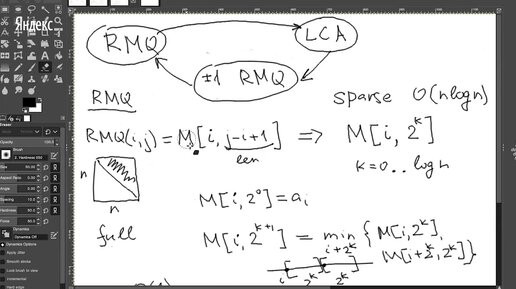 Яндекс
RMQ
LCA
±1 RMQ
RMQ
sparse O(n log n)
RMQ(i,j) = M[i, j-i+1] => M[i, 2^k]
len
k=0..log n
n
n
full
M[i, 2^0] = a_i
M[i, 2^{k+1}] = min {M[i, 2^k],
M[i+2^k, 2^k]}
i+2^k
i
2^k
2^k
Eraser
Brush
2. Hardness 050
Size
Aspect Ratio
Angle
Spacing
Hardness
Force
Dynamics
Dynamics Off
Dynamics Options
Apply Jitter
Smooth stroke
Incremental
Hard edge